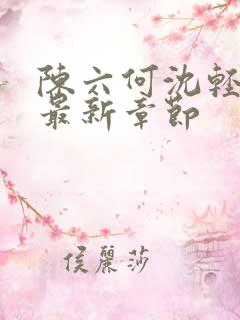 陳六何沈輕
最新章節
侯麗莎